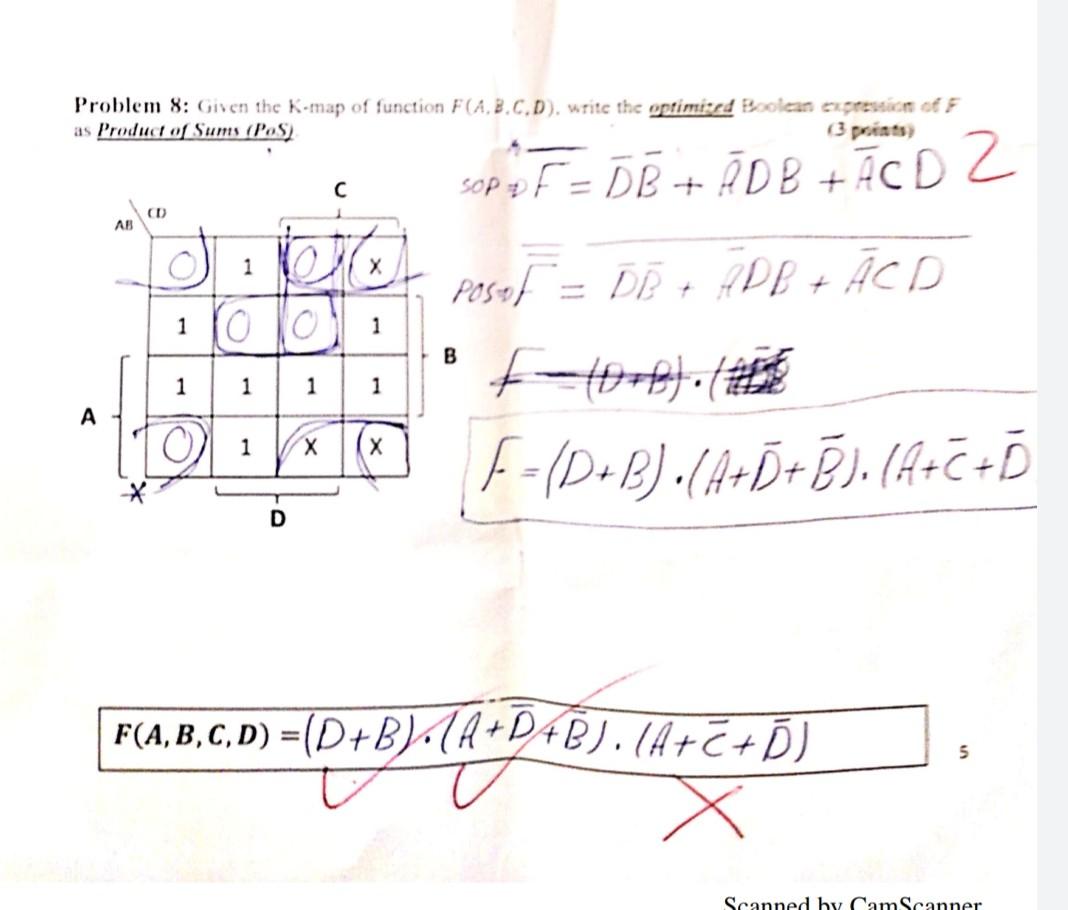 Problem 8: Given the K-map of function F(A,B,C,D), write the optimized Boolean expression of F
as Product of Sums (PoS). (3 points)
2
SOP ⇒ F̅ = D̅B̅ + A̅DB + A̅CD
C
CD
AB
0 1 0 X
POS ⇒ F̿ = D̅B̅ + A̅DB + A̅CD
1 0 0 1
B
F = (D+B) . (
1 1 1 1
A
0 1 X X
F = (D+B) . (A+D̅+B̅) . (A+C̅+D̅
X
D
F(A,B,C,D) = (D+B) . (A+D̅+B̅) . (A+C̅+D̅)
5
Scanned by CamScanner